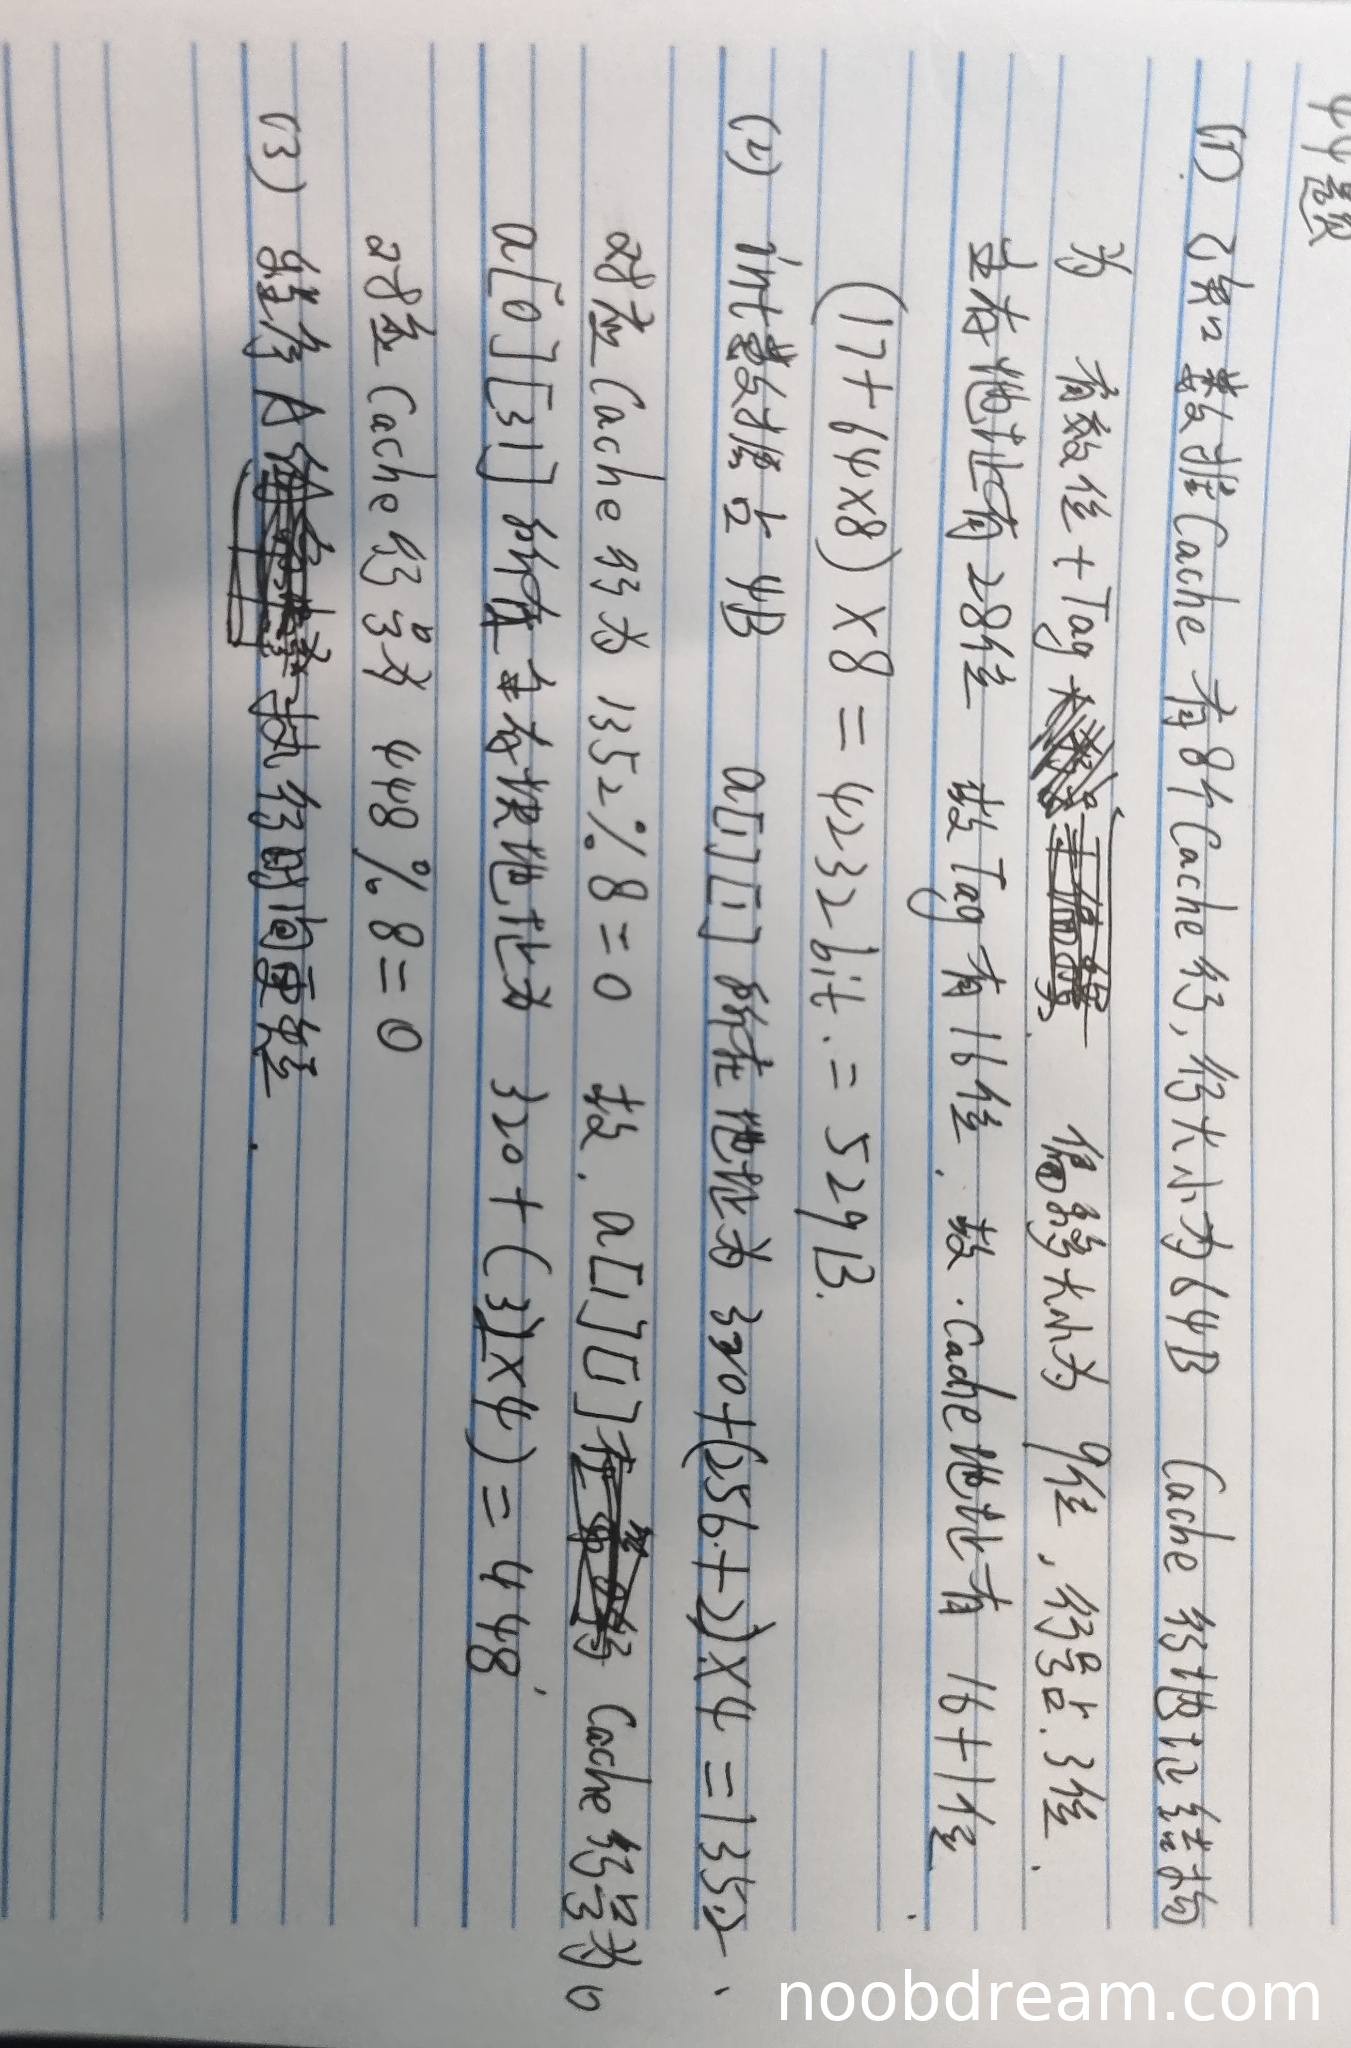 44题
(1) 已知数据Cache有8个Cache行,行大小为64B Cache行地址结构
为 有效位+Tag 偏移大小为 9位,行号占.3位.
主存地址有28位 故Tag有16位.故.Cache地址有 16+1位
(17+64×8)×8=4232bit.=529B.
(2) int数据占4B a[1][1]所在地址为 320+(256+2)×4=1352.
对应Cache行为 1352%8=0 故.a[1][1] Cache行号为0
a[0][31]所在主存块地址为 320+(31×4)=448
对应Cache行号为 448%8=0
(3) 程序A 执行时间更短.
noobdream.com